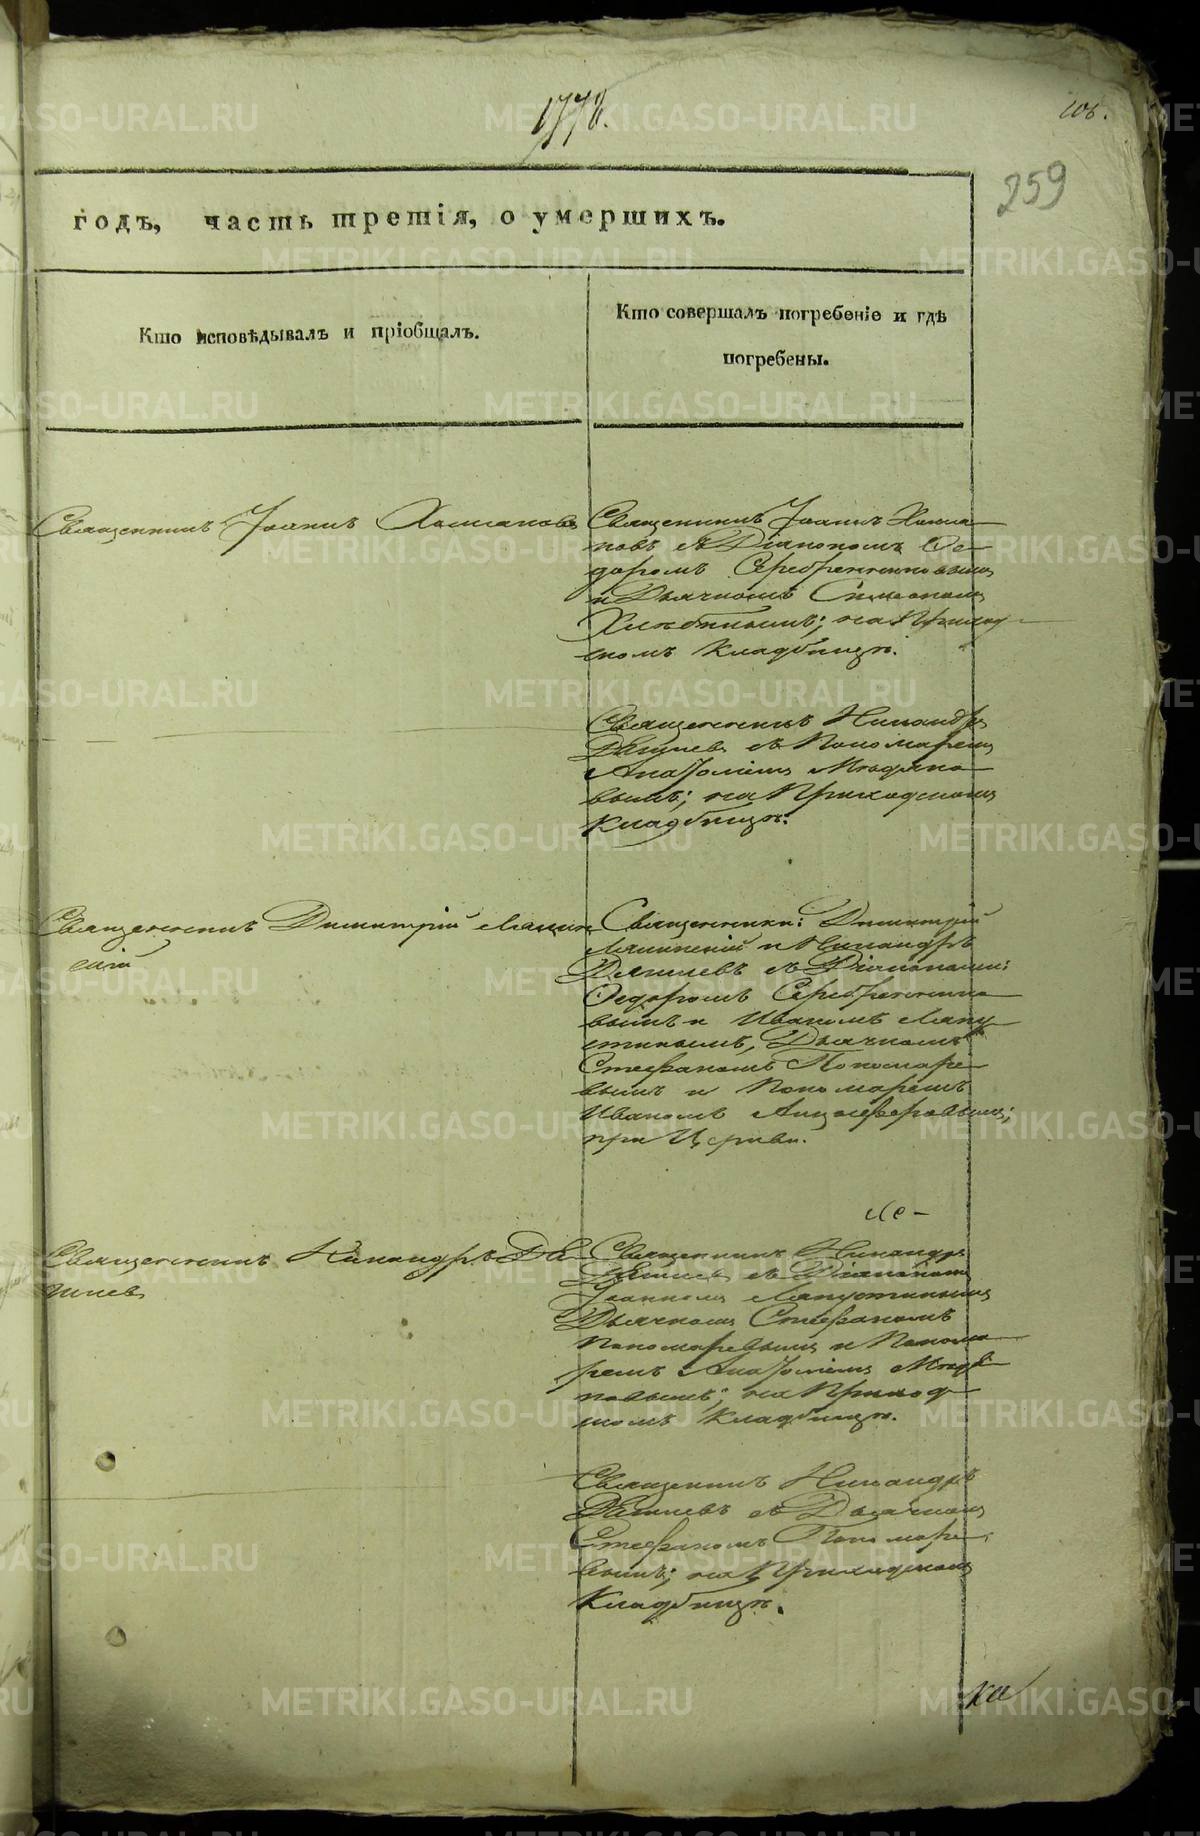 1778.
106.
259
годъ, часть третія, о умершихъ.
Кто исповѣдывалъ и пріобщалъ.
Кто совершалъ погребеніе и гдѣ
погребены.
Священникъ Іоаннъ
Священникъ Іоаннъ
новъ съ Діакономъ Ѳе-
доромъ Серебренниковымъ
и Дьячкомъ Симеономъ
Хлѣбинымъ; на Приход-
скомъ Кладбищѣ.
Священникъ Никандръ
съ Пономаремъ
Анатоліемъ Мѣдяко-
вымъ; на Приходскомъ
Кладбищѣ.
Священникъ Димитрій
скій
Священники: Димитрій
и Никандръ
съ Діаконами:
Ѳедоромъ Серебренико-
вымъ и Иваномъ Лапу-
стинымъ, Дьячкомъ
Стефаномъ Пономаре-
вымъ и Пономаремъ
Иваномъ
при Церкви.
Священникъ Никандръ
Священникъ Никандръ
съ Діакономъ
Іоанномъ Лапустинымъ
Дьячкомъ Стефаномъ
Пономаревымъ и Понома-
ремъ Анатоліемъ
на Приход-
скомъ Кладбищѣ.
Священникъ Никандръ
съ Дьячкомъ
Стефаномъ Пономаре-
вымъ; на Приходскомъ
Кладбищѣ.
METRIKI.GASO-URAL.RU